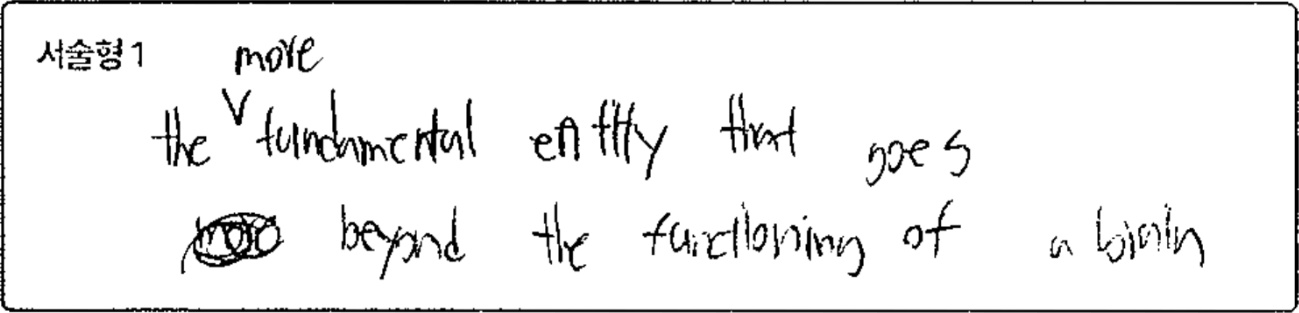 서술형 1
more
the ∨ fundamental entity that goes
beyond the functioning of a brain